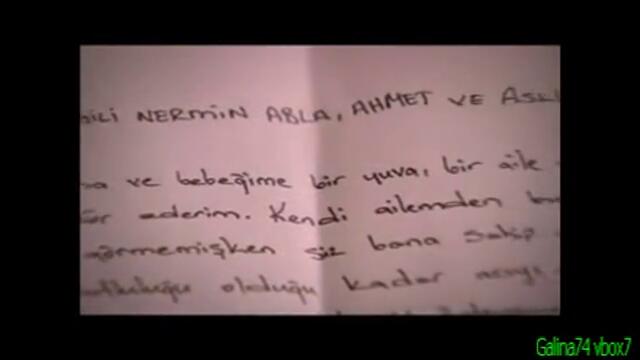 NERMİN ABLA, AHMET VE ASLI
ve bebeğime bir yuva, bir aile
ederim. Kendi ailemden
görmemişken siz bana sahip
olduğu kadar acıyı
Galina74 vbox7